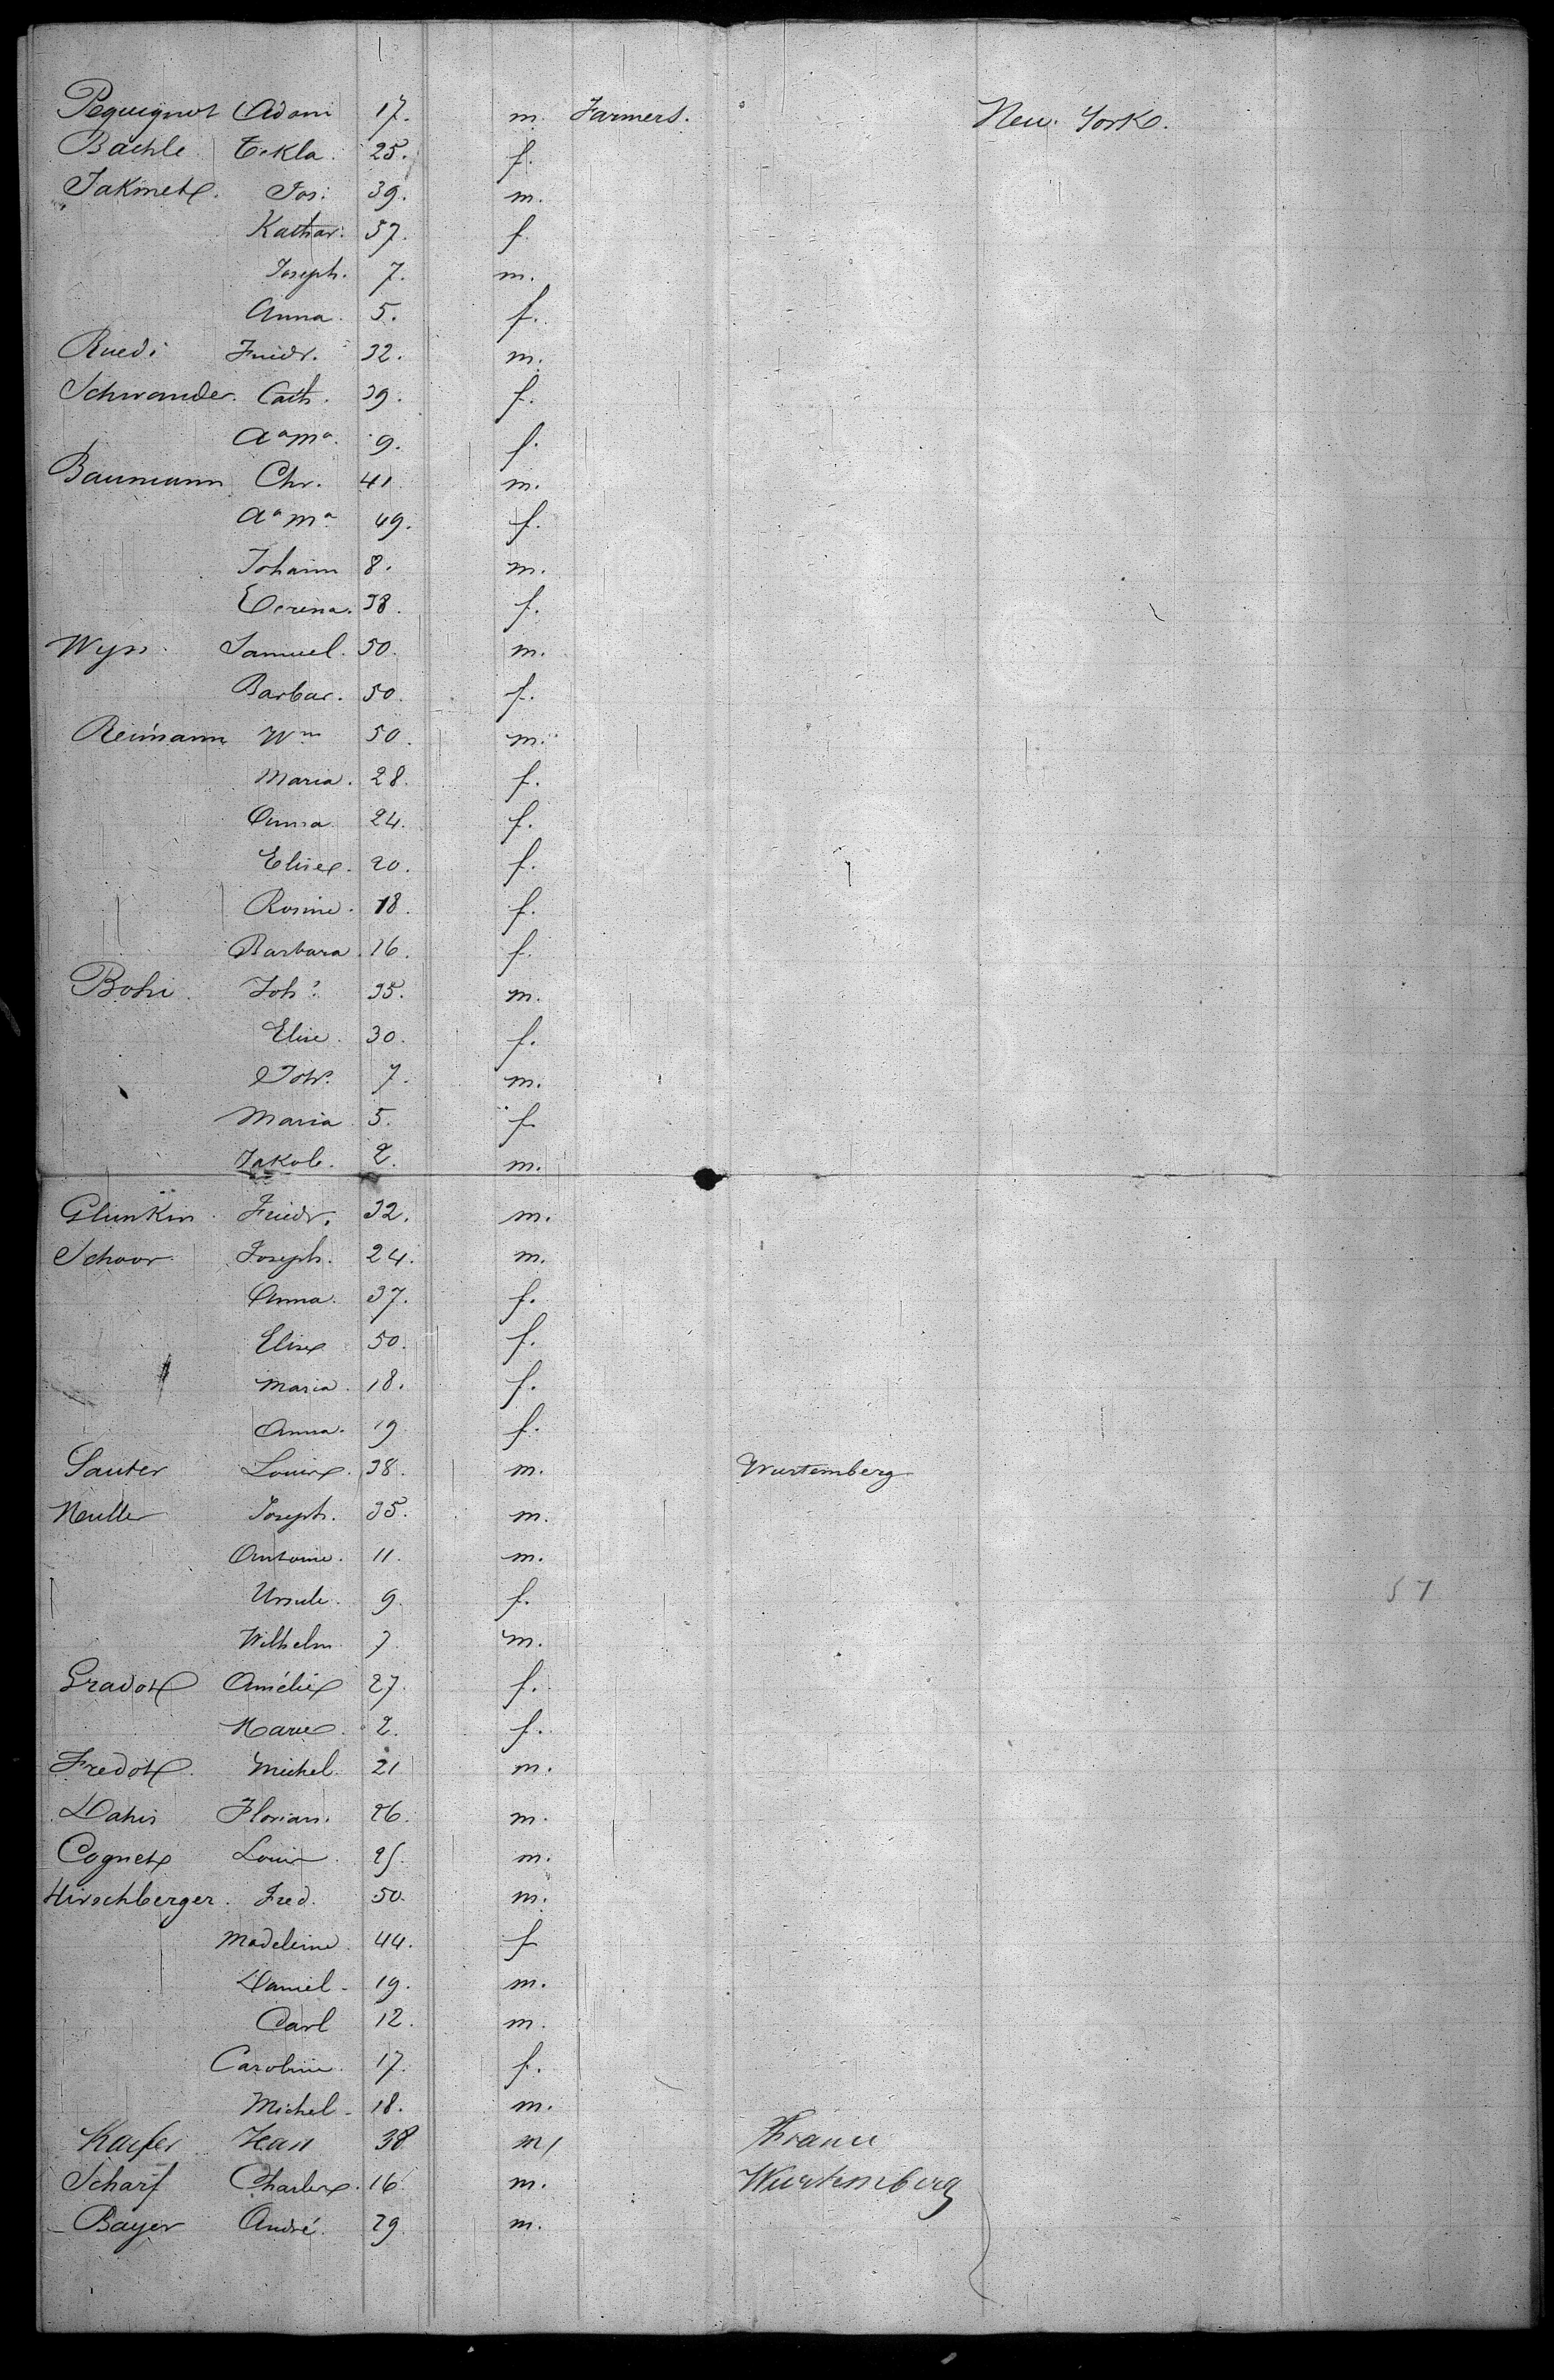 Pequignot Adam 17. m. Farmers. New York.
Bachle Tekla. 25. f.
Jakmet. Jos: 39. m.
Kathar: 37. f.
Joseph. 7. m.
Anna. 5. f.
Ruedi Friedr. 32. m.
Schwander. Cath. 39. f.
Aª Mª. 9. f.
Baumann Chr. 41. m.
Aª Mª 49. f.
Johann 8. m.
Verena. 38. f.
Wyss. Samuel. 50. m.
Barbar. 50. f.
Reimann Wm 50. m.
Maria. 28. f.
Anna 24. f.
Elise. 20. f.
Rosine. 18. f.
Barbara. 16. f.
Bohi. Joh. 35. m.
Elise. 30. f.
Joh. 7. m.
Maria 5. f.
Jakob. 2. m.
Glunkin. Friedr. 32. m.
Schoor Joseph. 24. m.
Anna. 37. f.
Elise 50. f.
Maria. 18. f.
Anna. 19 f.
Sauter Louis. 38. m. Wurtemberg
Muller Joseph. 35. m.
Antoine. 11. m.
Ursule. 9. f.
Wilhelm 7. m.
Gradot Amélie 27. f.
Marie. 2. f.
Fredot. Michel. 21 m.
Dahis Florian. 26. m.
Cognet Louis 25. m.
Hirschberger. Fred. 50. m.
Madeleine. 44. f
Daniel - 19. m.
Carl 12. m.
Caroline. 17. f.
Michel - 18. m.
Kaufer Jean 38 m France
Scharf Charles. 16. m. Wurtemberg
Bayer André. 29. m.
57